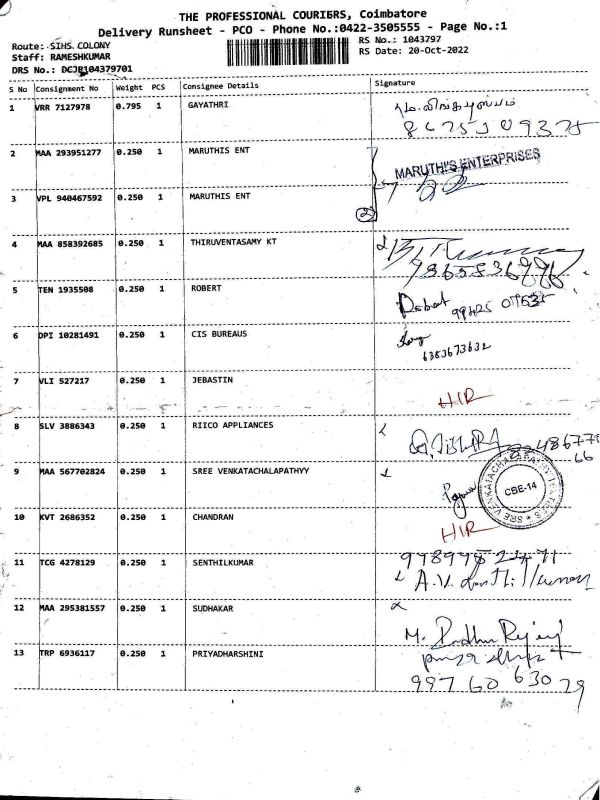 THE PROFESSIONAL COURIERS, Coimbatore
Delivery Runsheet - PCO - Phone No.:0422-3505555 - Page No.:1
Route: SIHS COLONY
RS No.: 1043797
Staff: RAMESHKUMAR
RS Date: 20-Oct-2022
DRS No.: DCJB104379701
S No Consignment No Weight PCS Consignee Details Signature
1 VRR 7127978 0.795 1 GAYATHRI
2 MAA 293951277 0.250 1 MARUTHIS ENT
MARUTHI'S ENTERPRISES
3 VPL 940467592 0.250 1 MARUTHIS ENT
2
4 MAA 858392685 0.250 1 THIRUVENTASAMY KT
5 TEN 1935508 0.250 1 ROBERT Robert
6 DPI 10281491 0.250 1 CIS BUREAUS
6383673632
7 VLI 527217 0.250 1 JEBASTIN HIR
8 SLV 3886343 0.250 1 RIICO APPLIANCES
9 MAA 567702824 0.250 1 SREE VENKATACHALAPATHYY
CBE-14
10 KVT 2686352 0.250 1 CHANDRAN HIR
11 TCG 4278129 0.250 1 SENTHILKUMAR
12 MAA 295381557 0.250 1 SUDHAKAR
13 TRP 6936117 0.250 1 PRIYADHARSHINI
997 60 630 79